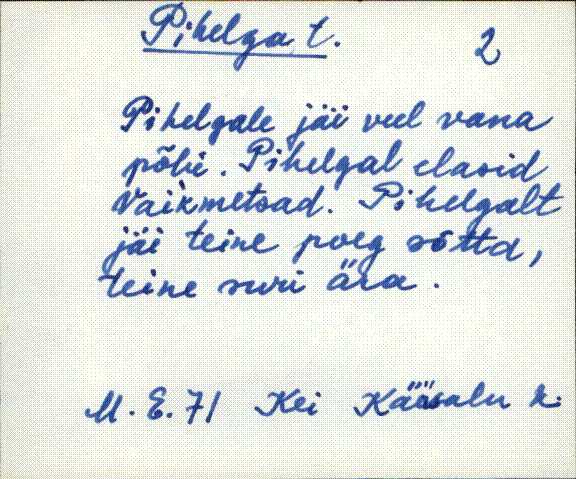 Pihelga t. 2
Pihelgale jäi veel vana
põhi. Pihelgal elasid
Vaikmetsad. Pihelgalt
jäi teine poeg sõtta,
teine suri ära.
M. E. 71 Kei Kääsalu k.